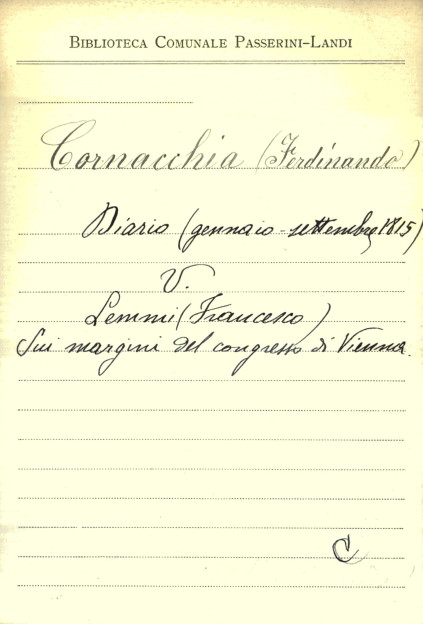 BIBLIOTECA COMUNALE PASSERINI-LANDI
Cornacchia (Ferdinando)
Diario (gennaio-settembre 1815)
V.
Lemmi (Francesco)
Sui margini del congresso di Vienna.
C